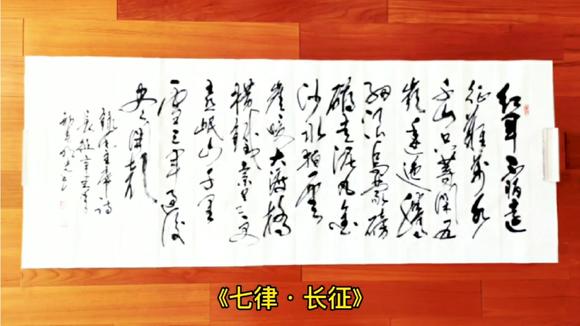 红军不怕远
征难万水
千山只等闲五
岭逶迤腾
细浪乌蒙磅
礴走泥丸金
沙水拍云
崖暖大渡桥
横铁索寒更
喜岷山千里
雪三军过后
尽开颜
录毛主席诗
长征
《七律·长征》